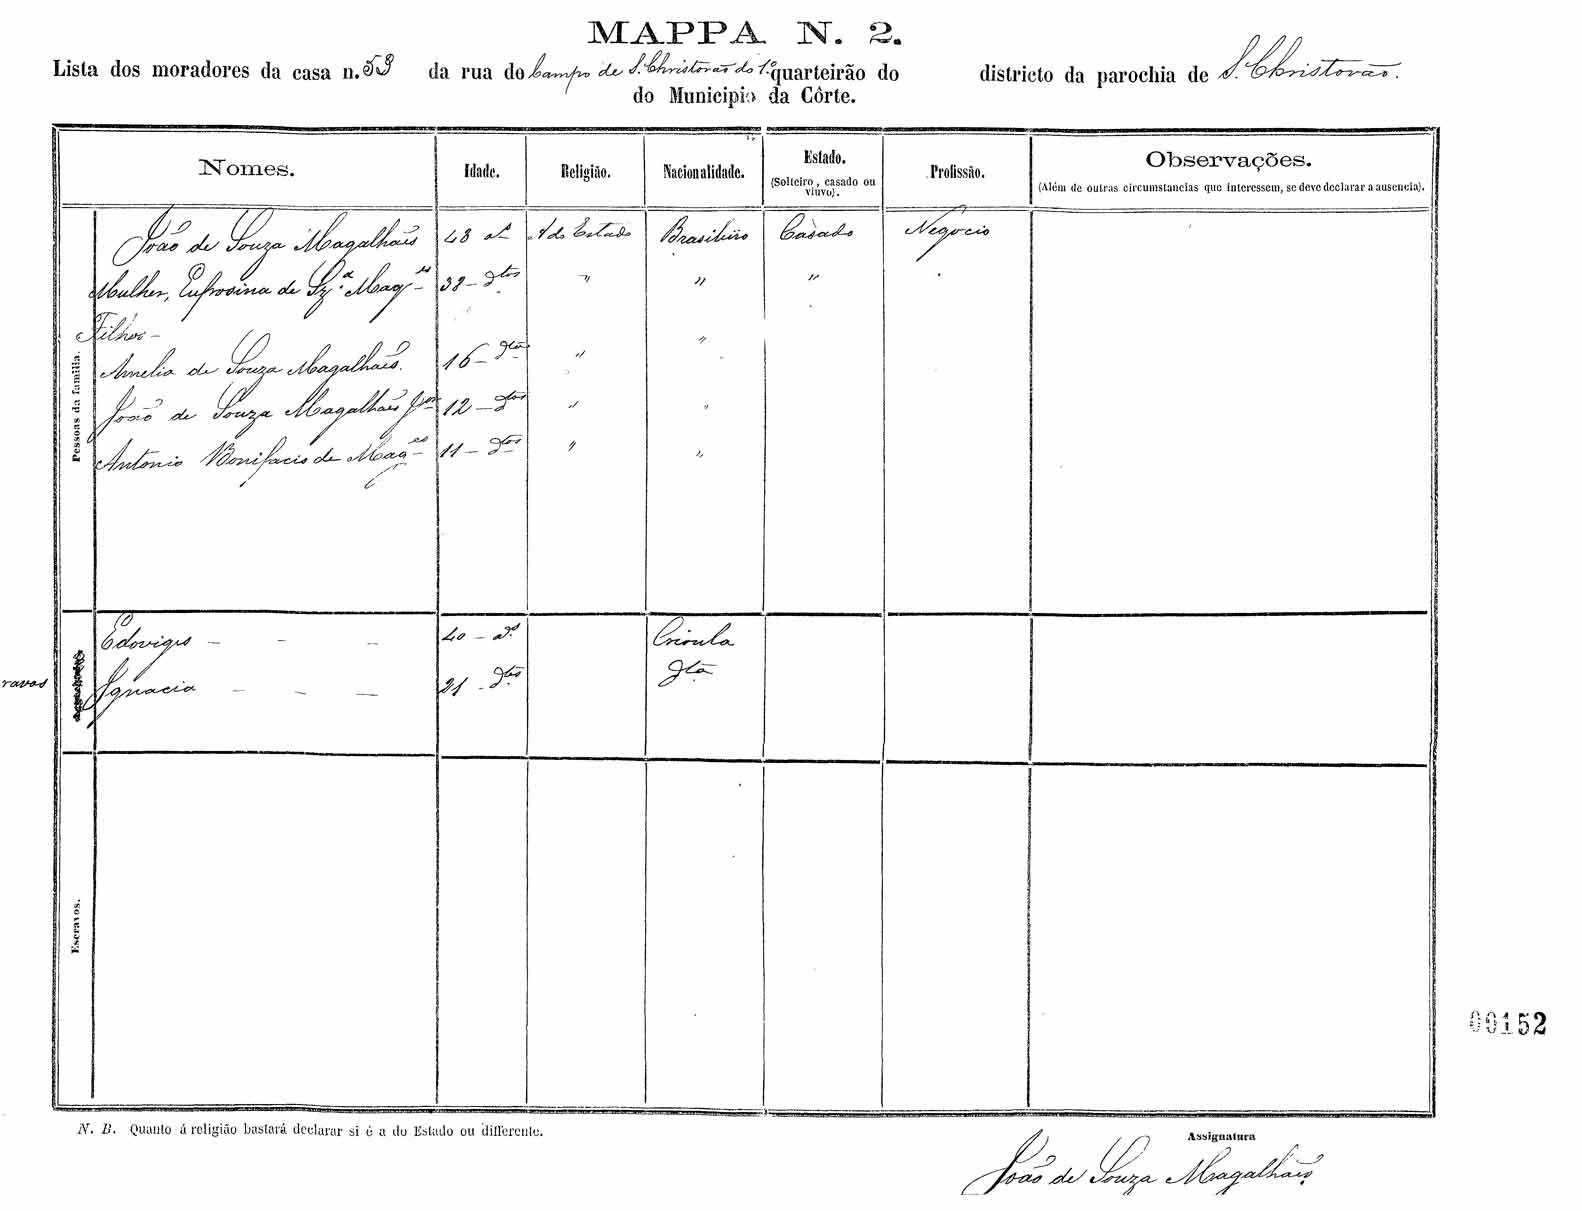 MAPPA N. 2.
Lista dos moradores da casa n. 53 da rua do Campo de S. Christovão do 1.º quarteirão do districto da parochia de S. Christovão.
do Municipio da Côrte.
Nomes. Idade. Religião. Nacionalidade. Estado. Profissão. Observações.
(Solteiro, casado ou viuvo). (Além de outras circumstancias que interessem, se deve declarar a ausencia).
Pessoas da familia.
João de Souza Magalhães 48 as A do Estado Brasileiro Casado Negocio
Mulher, Eufrosina de Sza. Mages 38 - dtos " " "
Filhos - "
Amelia de Souza Magalhães. 16 - dtos "
João de Souza Magalhães Jor 12 - dtos " "
Antonio Bonifacio de Mages 11 - dtos " "
Edoviges - - - 40 - as Crioula
ravos Ignacia - - - 21 - dtos dta
Escravos.
00152
N. B. Quanto á religião bastará declarar si é a do Estado ou differente.
Assignatura
João de Souza Magalhães